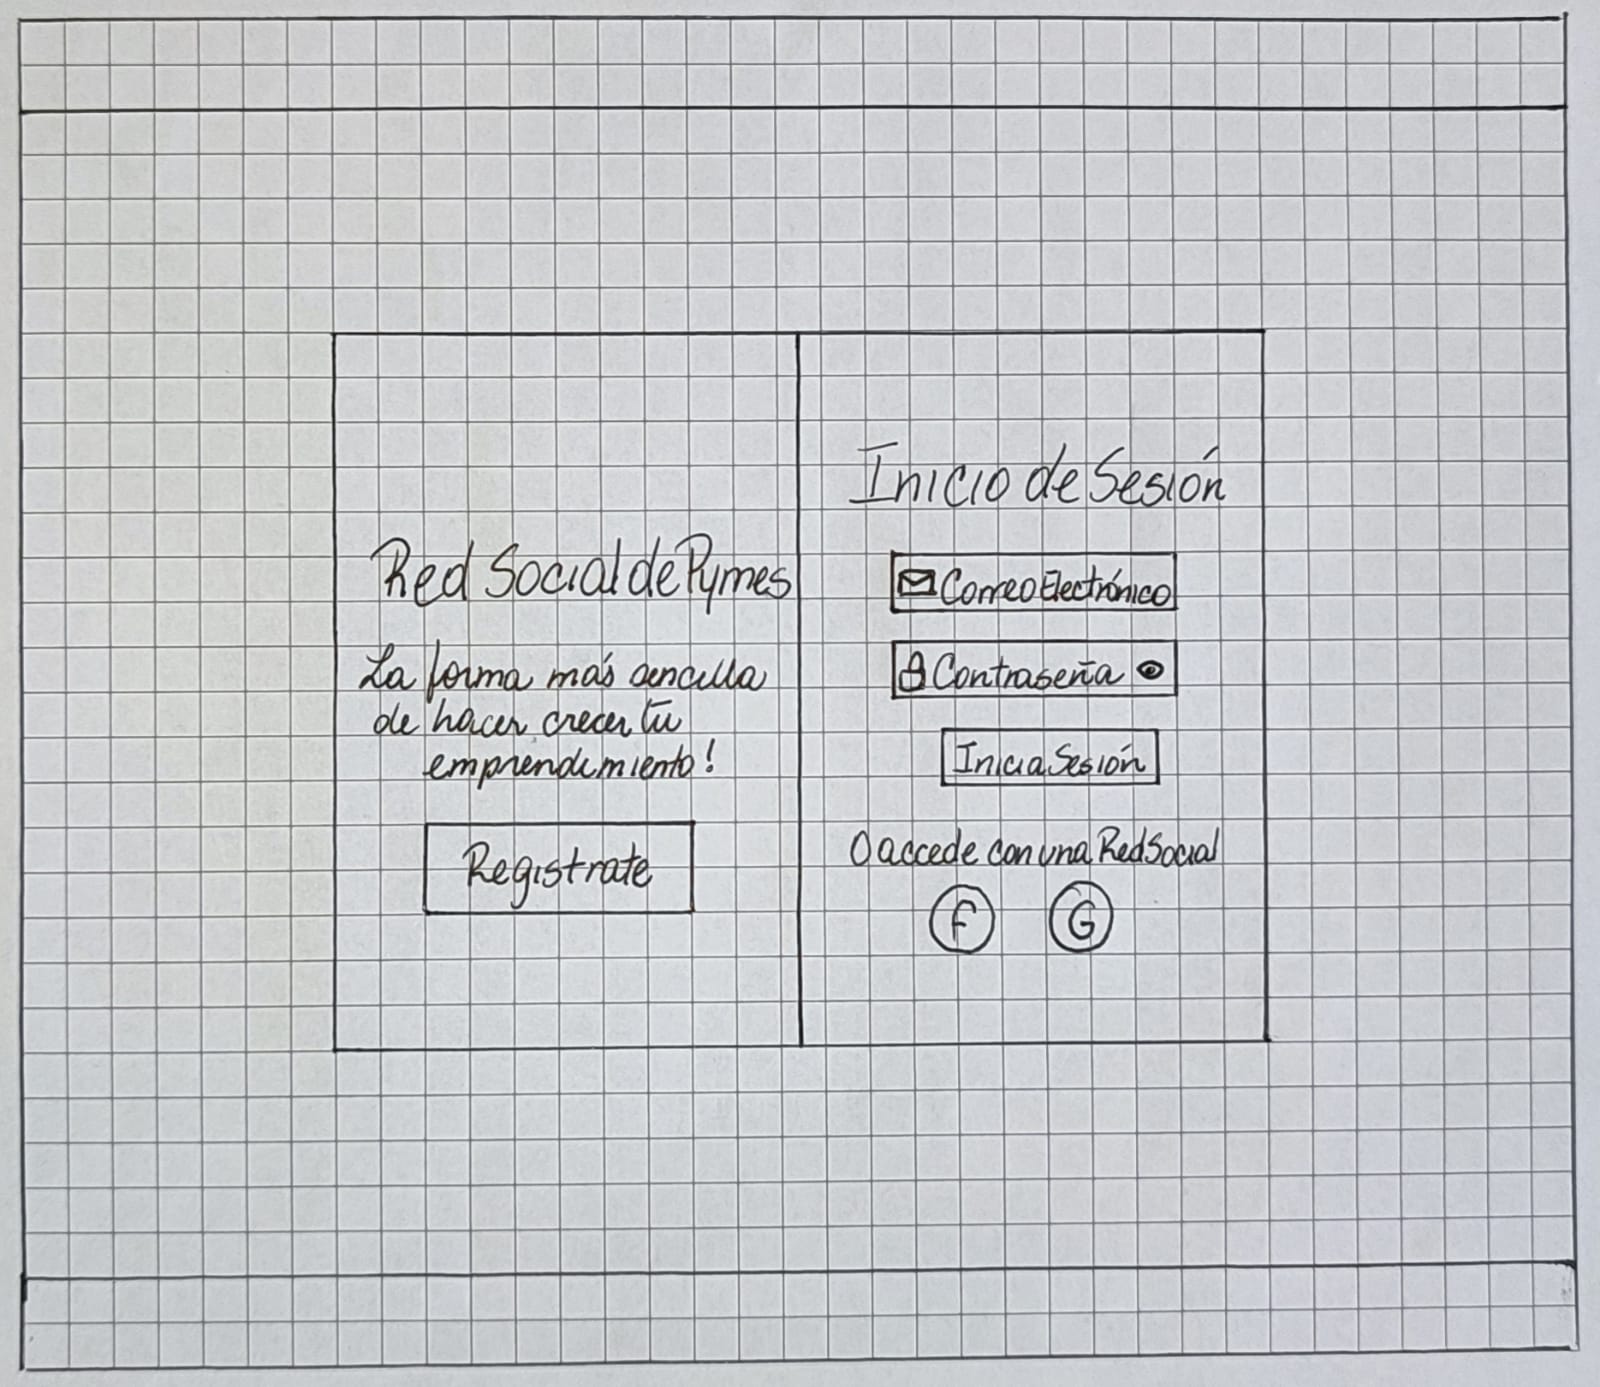 Red Social de Pymes
La forma más sencilla
de hacer crecer tu
emprendimiento!
Registrate
Inicio de Sesión
Correo Electrónico
Contraseña
Inicia Sesión
O accede con una Red Social
F G